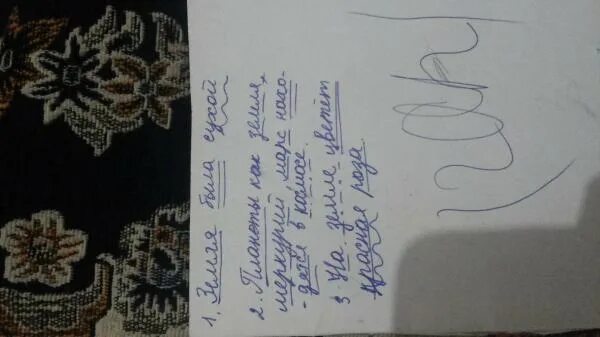 1. Земля была сухой
2. Планеты как земля,
меркурий, марс нахо-
-дятся в космосе.
3. На земле цветёт
красная роза.